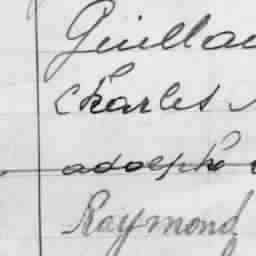 Guillau
Charles
adolphe
Raymond